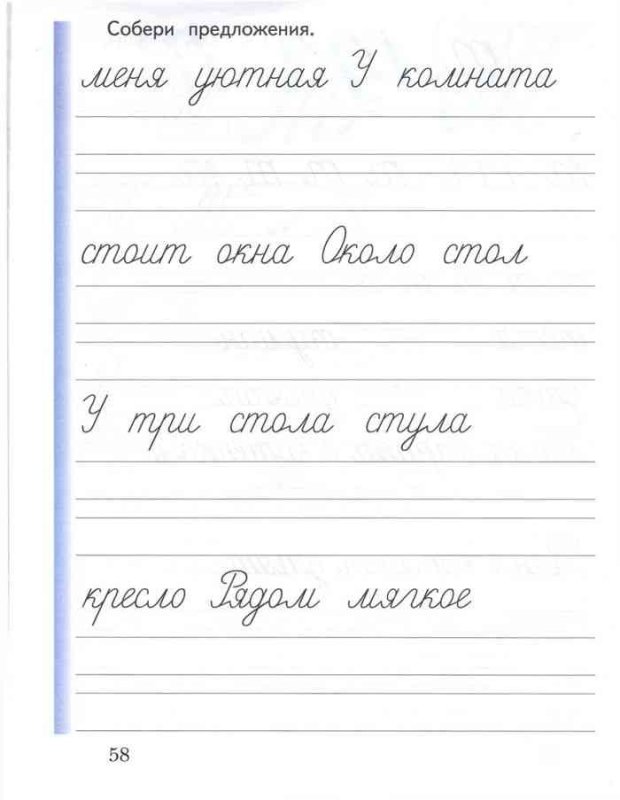 Собери предложения.
меня уютная У комната
стоит окна Около стол
У три стола стула
кресло Рядом мягкое
58